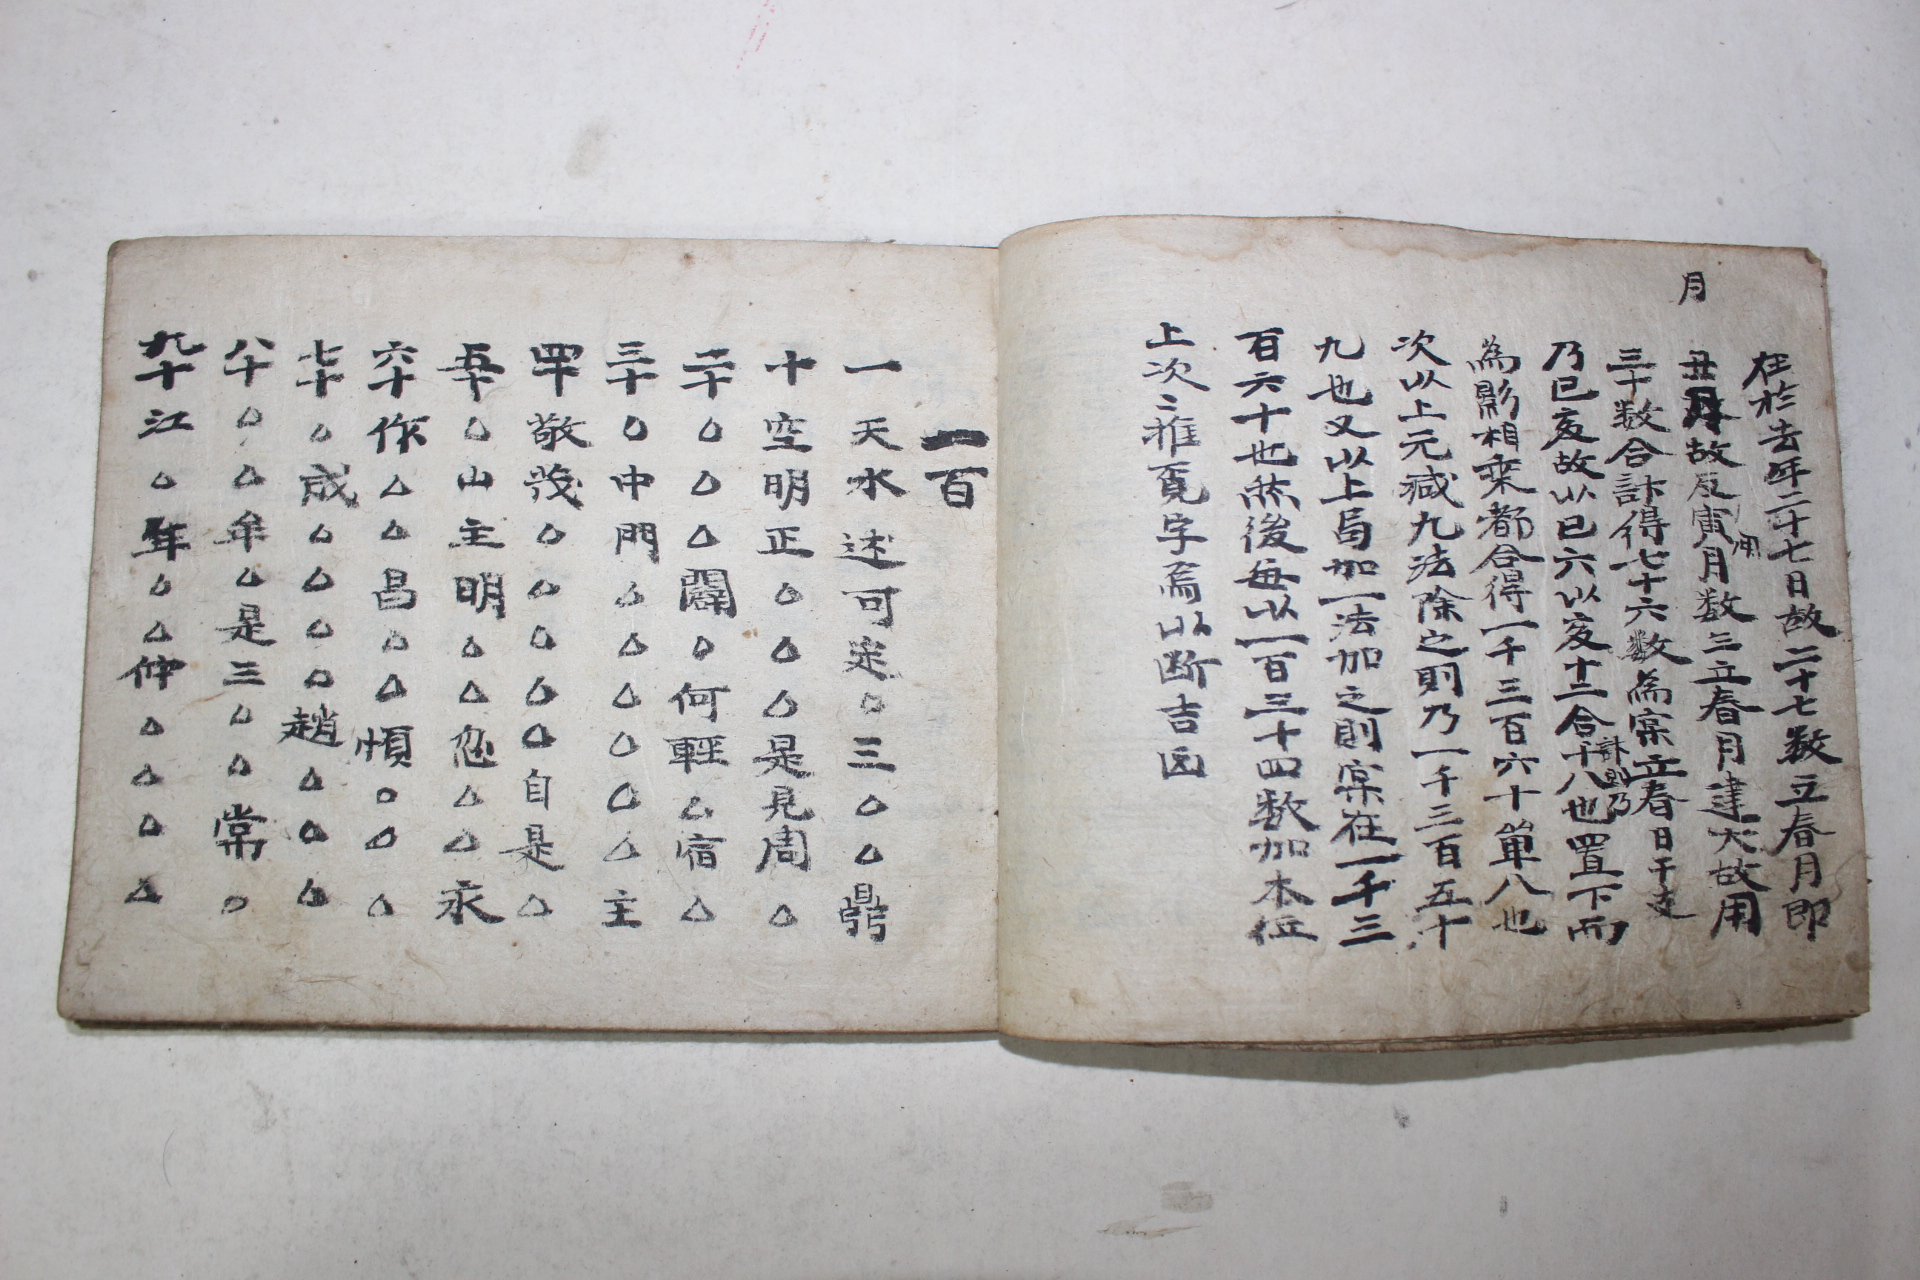 月
在於去年二十七日故二十七数立春月即
丑月故反用寅月数三立春月建大故用
三十数合計得七十六数為宲立春日干支
乃已亥故以已六以亥十二合計則乃十八也置下而
為影相乗都合得一千三百六十單八也
次以上元减九法除之則乃一千三百五十
九也又以上局加一法加之則宲在一千三
百六十也然後每以一百三十四数加本位
上次次推覓字焉以断吉凶
一百
一天水述可定○三○△鼎
十空明正△○△△是見周△
二十○△△闢○何輕△宿△
三十○中門△△△○○△主
四十敬後○△○△○自是△
五十○山主明△△忽△△永
六十作△△昌○△愼○○△
七十○成△△△○趙△○△
八十○△牟△是三○△常○
九十江△年△△仲△△○△